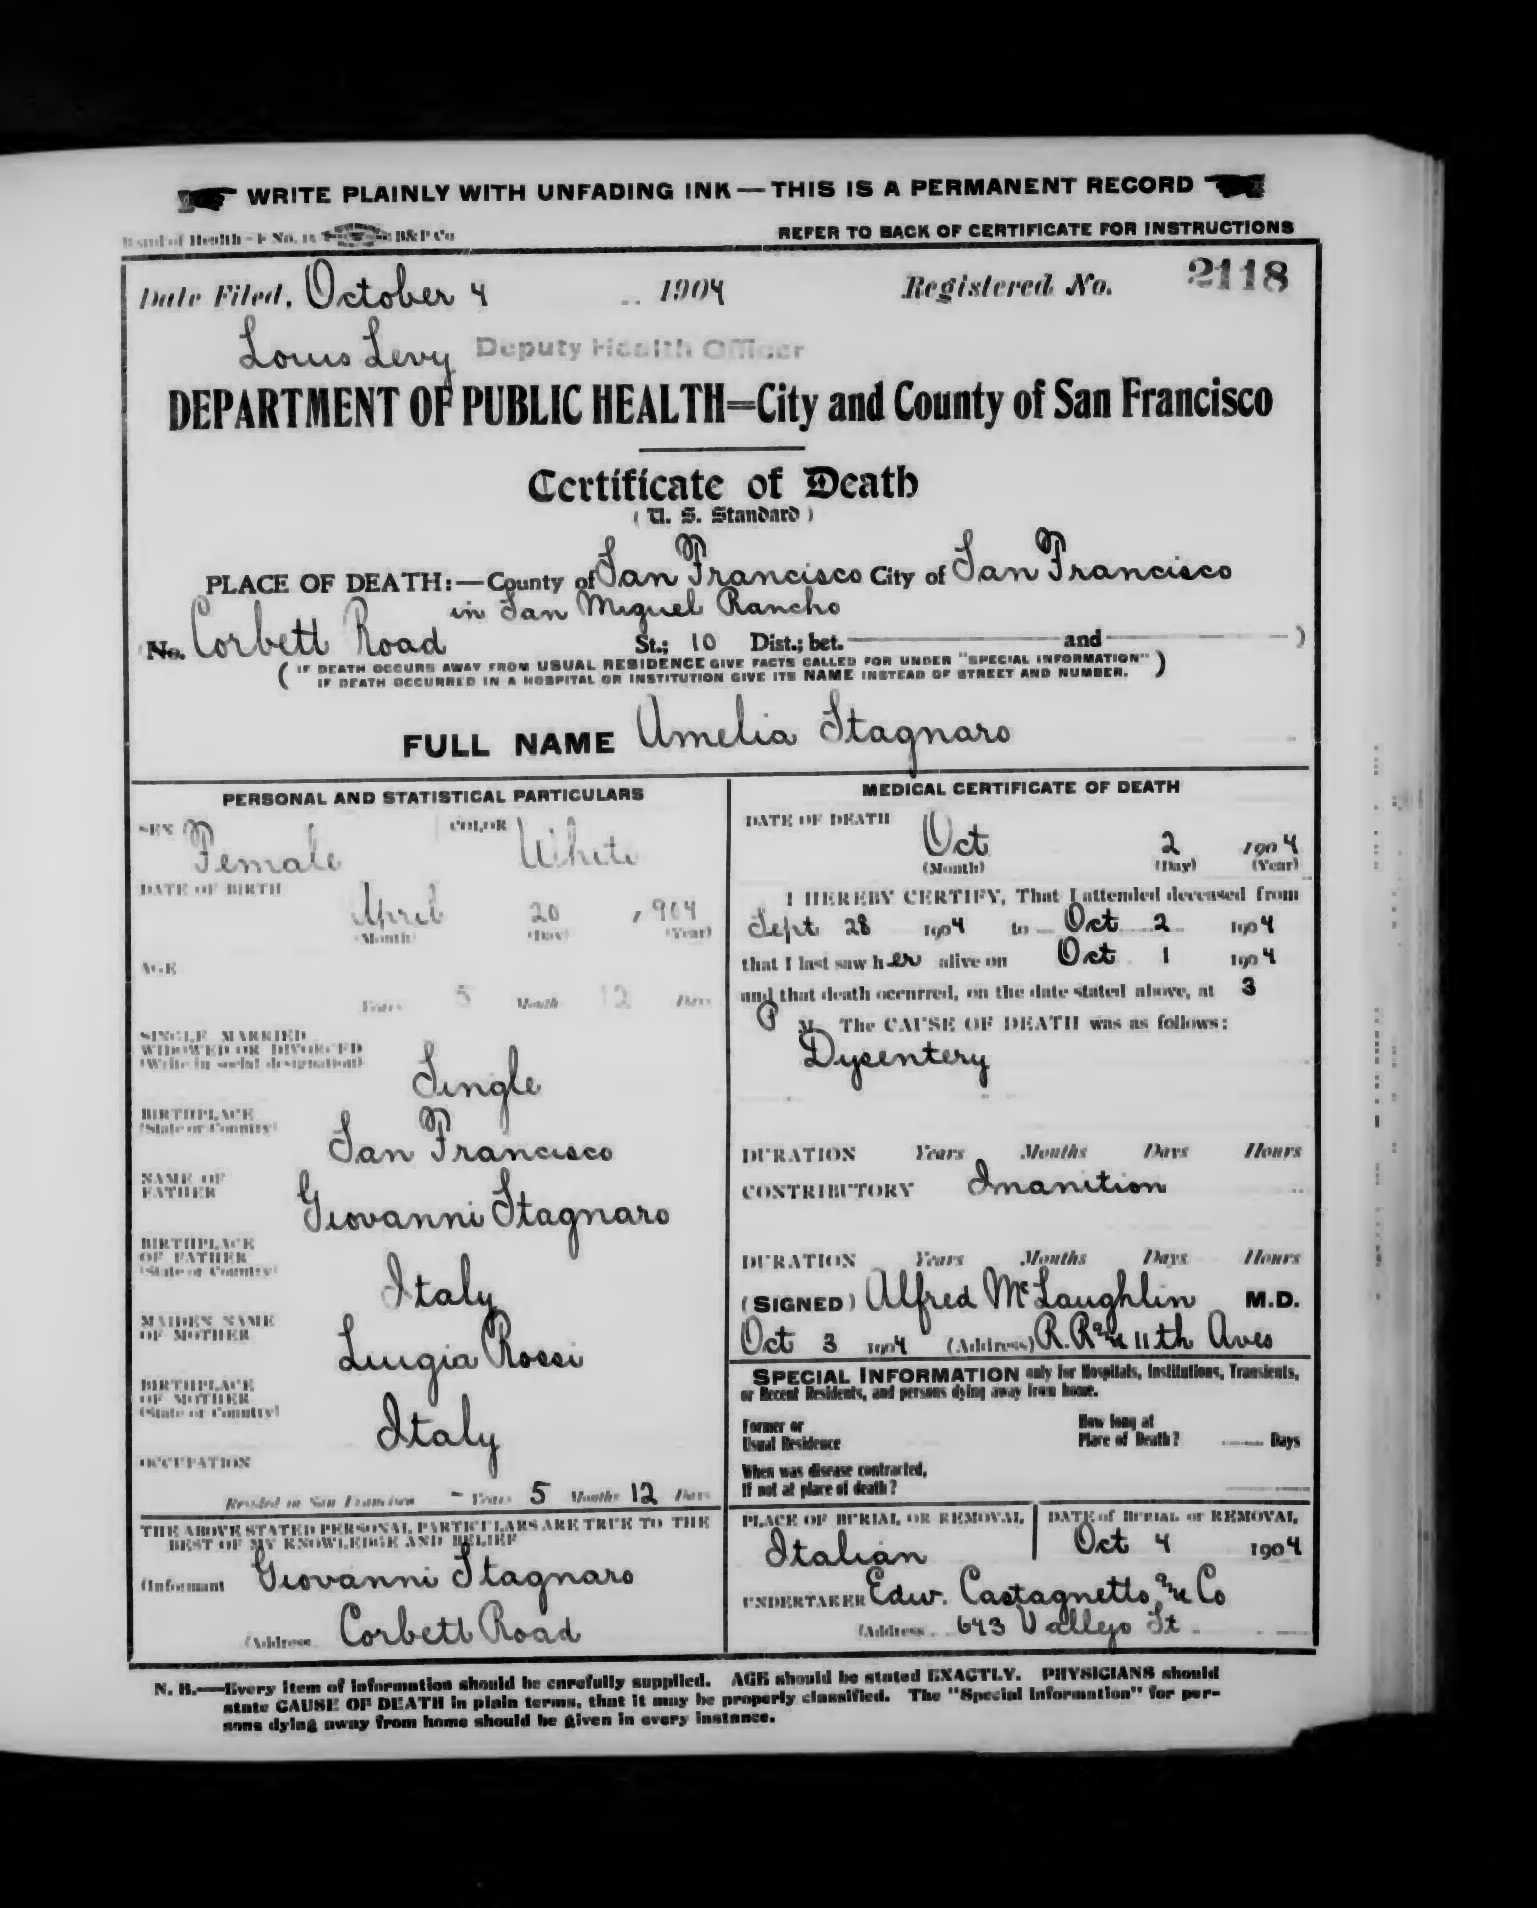 WRITE PLAINLY WITH UNFADING INK — THIS IS A PERMANENT RECORD
Board of Health - F No. 15 B&P Co
REFER TO BACK OF CERTIFICATE FOR INSTRUCTIONS
Date Filed, October 4 1904 Registered No. 2118
Louis Levy Deputy Health Officer
DEPARTMENT OF PUBLIC HEALTH=City and County of San Francisco
Certificate of Death
( U. S. Standard )
PLACE OF DEATH:—County of San Francisco City of San Francisco
in San Miguel Rancho
No. Corbett Road St.; 10 Dist.; bet. and )
( IF DEATH OCCURS AWAY FROM USUAL RESIDENCE GIVE FACTS CALLED FOR UNDER "SPECIAL INFORMATION" )
IF DEATH OCCURRED IN A HOSPITAL OR INSTITUTION GIVE ITS NAME INSTEAD OF STREET AND NUMBER.
FULL NAME Amelia Stagnaro
PERSONAL AND STATISTICAL PARTICULARS
SEX Female COLOR White
DATE OF BIRTH
April 20 , 904
(Month) (Day) (Year)
AGE
Years 5 Months 12 Days
SINGLE MARRIED
WIDOWED OR DIVORCED
(Write in social designation)
Single
BIRTHPLACE
(State or Country)
San Francisco
NAME OF
FATHER
Giovanni Stagnaro
BIRTHPLACE
OF FATHER
(State or Country)
Italy
MAIDEN NAME
OF MOTHER
Luigia Rossi
BIRTHPLACE
OF MOTHER
(State or Country)
Italy
OCCUPATION
Resided in San Francisco - Years 5 Months 12 Days
THE ABOVE STATED PERSONAL PARTICULARS ARE TRUE TO THE
BEST OF MY KNOWLEDGE AND BELIEF
(Informant Giovanni Stagnaro
(Address Corbett Road
MEDICAL CERTIFICATE OF DEATH
DATE OF DEATH
Oct 2 1904
(Month) (Day) (Year)
I HEREBY CERTIFY, That I attended deceased from
Sept 28 1904 to Oct 2 1904
that I last saw her alive on Oct 1 1904
and that death occurred, on the date stated above, at 3
P M. The CAUSE OF DEATH was as follows:
Dysentery
DURATION Years Months Days Hours
CONTRIBUTORY Inanition
DURATION Years Months Days Hours
(SIGNED) Alfred McLaughlin M.D.
Oct 3 1904 (Address) R.R. & 11th Aves
SPECIAL INFORMATION only for Hospitals, Institutions, Transients,
or Recent Residents, and persons dying away from home.
Former or
Usual Residence
How long at
Place of Death? Days
When was disease contracted,
If not at place of death?
PLACE OF BURIAL OR REMOVAL
Italian
DATE of BURIAL or REMOVAL
Oct 4 1904
UNDERTAKER Edw. Castagnetto & Co
(Address 643 Vallejo St
N. B.—Every item of information should be carefully supplied. AGE should be stated EXACTLY. PHYSICIANS should
state CAUSE OF DEATH in plain terms, that it may be properly classified. The "Special Information" for per-
sons dying away from home should be given in every instance.